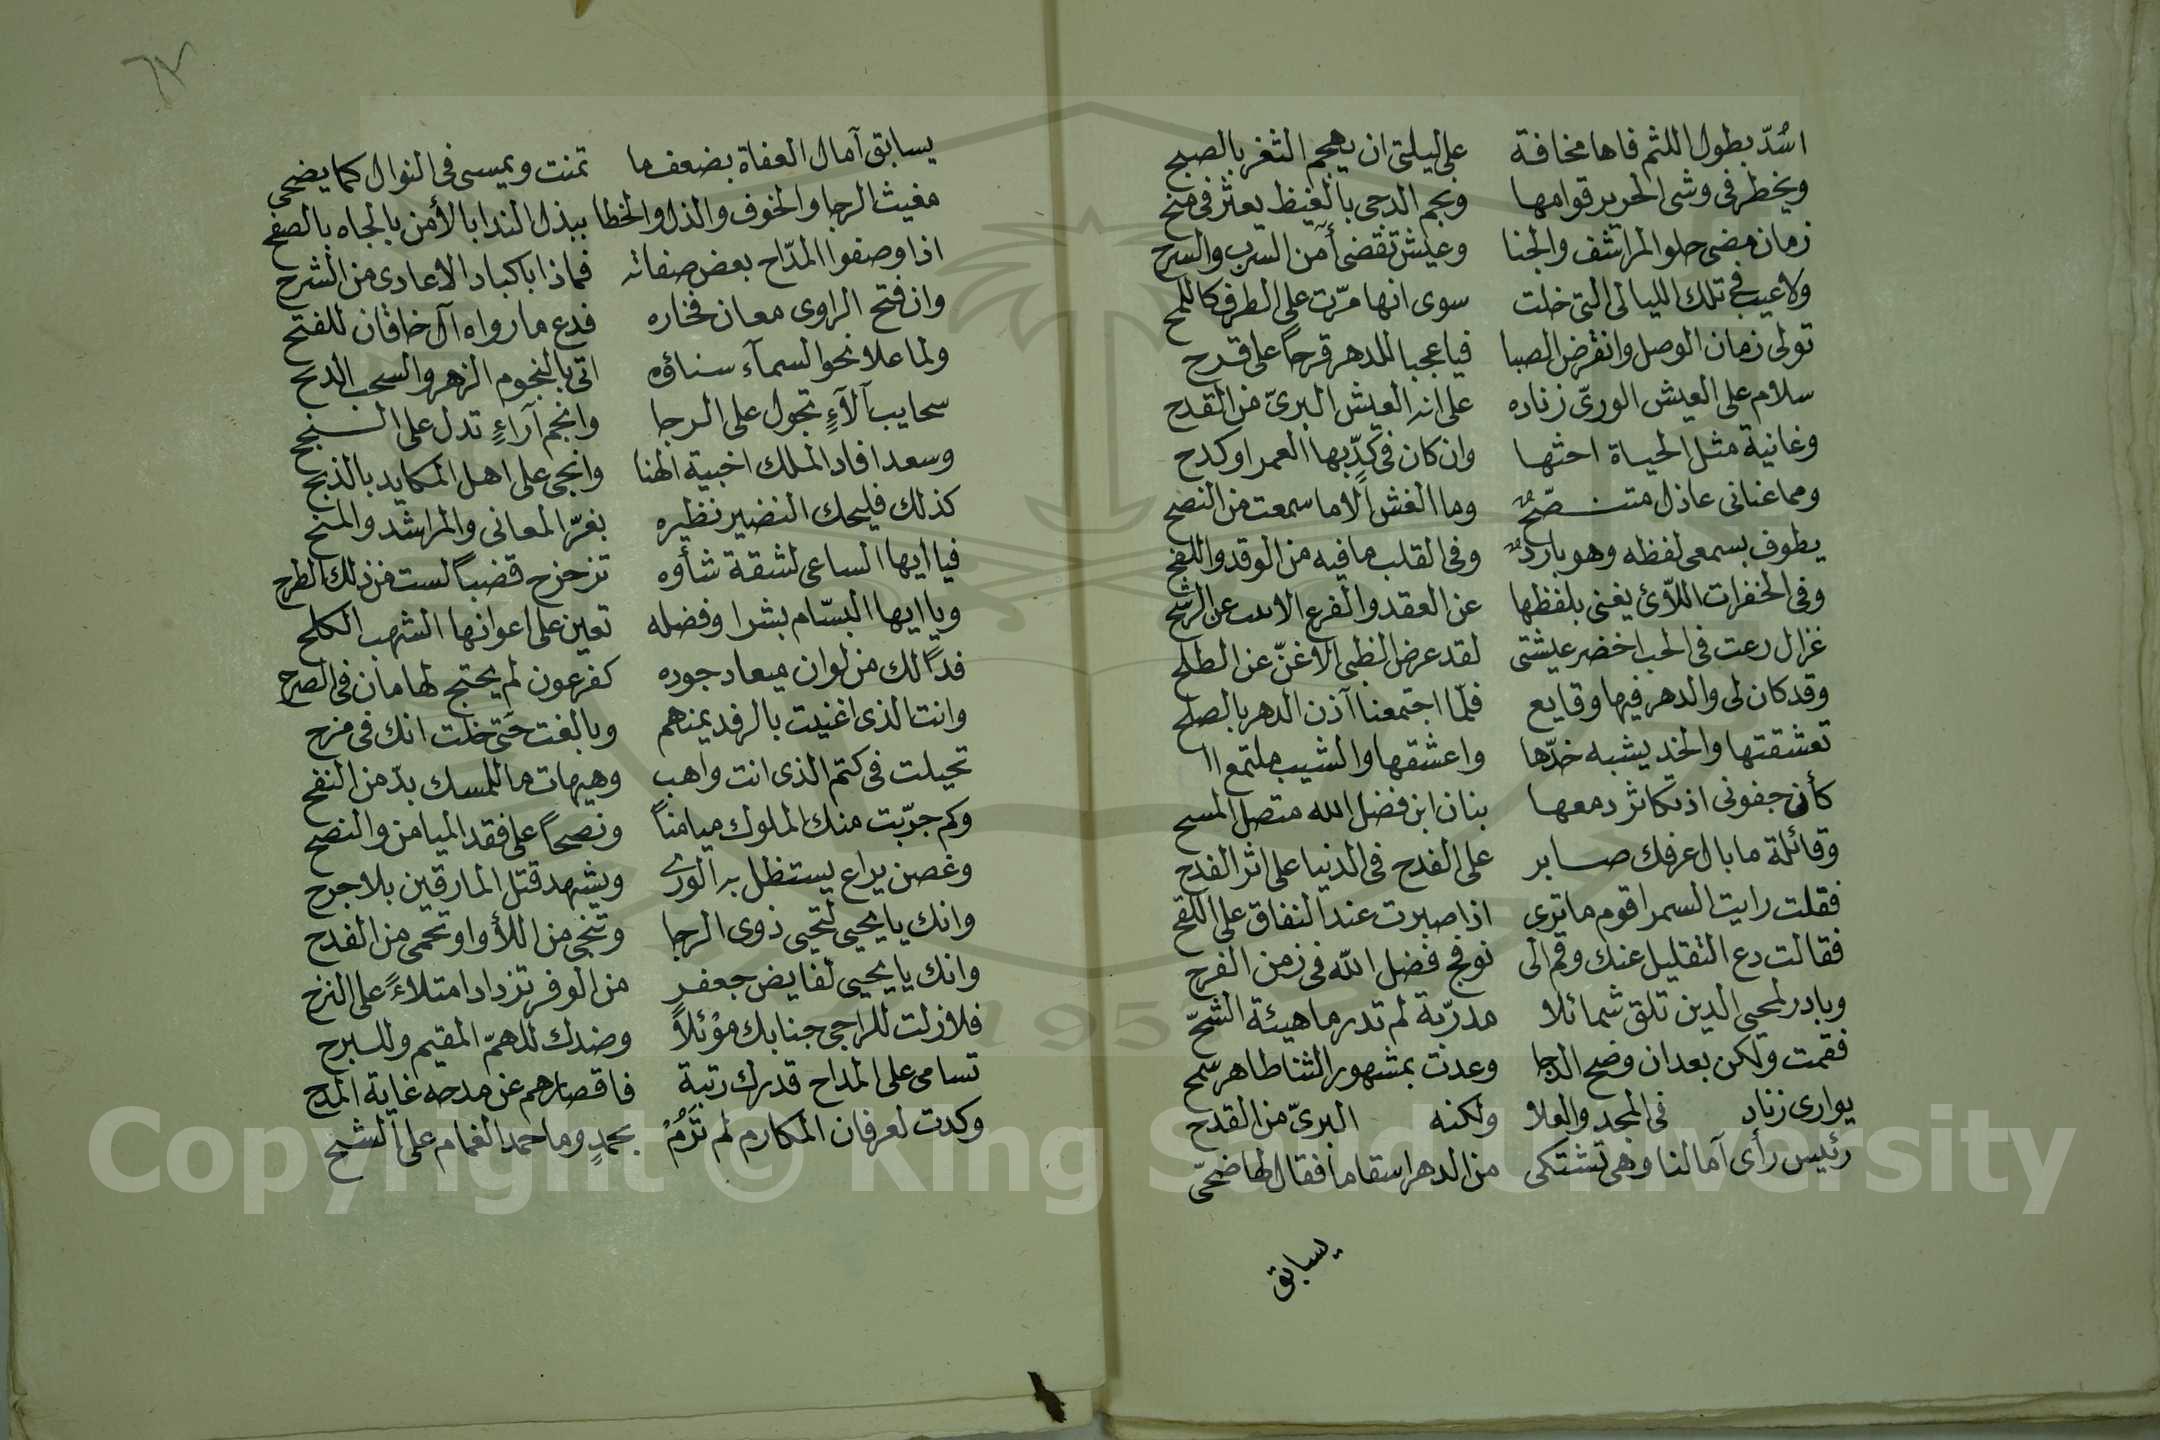 اسُدّ بطول اللثم فاها مخافة على ليلتى ان يهجم الثغر بالصبح
ويخطر فى وشى الحرير قوامها ونجم الدجى بالغيظ يعثر فى منح
زمان مضى حلو المراشف والجنا وعيش تقضى آمن السرب والسرح
ولا عيب فى تلك الليالى التى خلت سوى انها مرّت على الطرف كاللمح
تولى زمان الوصل وانقرض الصبا فيا عجبا للدهر قرحاً على قرح
سلام على العيش الورىّ زناده على انه العيش البرىّ من القدح
وغانية مثل الحياة احثها وان كان فى كدّ بها العمر او كدح
ومما عنانى عاذل متنصّحٌ وما الغش الا ما سمعت من النصح
يطوف بسمعى لفظه وهو باردٌ وفى القلب ما فيه من الوقد واللفح
وفى الخفرات اللآئ يغنى بلفظها عن العقد والفرع عن الرشح
غزال رعت فى الحب اخضر عيشتى لقد عرض الظبى الاغنّ عن الطلح
وقد كان لى والدهر فيها وقايع فلمّا اجتمعنا آذن الدهر بالصلح
تعشقتها والخد يشبه خدّها واعشقها والشيب ملتمع
كأن جفونى اذ تكاثر دمعها بنان ابن فضل الله متصل المسح
وقائلة ما بال عرفك صابر على الفدح فى الدنيا على اثر الفدح
فقلت رايت السمر اقوم ما ترى اذا صبرت عند النفاق على اللقح
فقالت دع التقليل عنك وقم الى فضل الله فى زمن الفرح
وبادر لمحيى الدين تلق شمائلا مدرّبة لم تدر ما هيئة الشحّ
فقمت ولكن بعد ان وضح الدجا وعدت بمشهور الثنا طاهر سمح
يوارى زناد فى المجد والعلاو ولكنه البرىّ من القدح
رئيس رأى آمالنا وهى تشتكى من الدهر اسقاما فقال لها ضحّى
يسابق
٦٢
يسابق آمال العفاة بضعف ما تمنت ويمسى فى النوال كما يضحى
مغيث الرجا والخوف والذل والخطا ببذل الندا بالأمن بالجاه بالصفح
اذا وصفوا المدّاح بعض صفاته فماذا باكباد الاعادى من الشرح
وان فتح الراوى معان فخاره فدع ما رواه آل خاقان للفتح
ولما علا نحو السمآء سناؤه اتى بالنجوم الزهر والسحب الدلح
سحايب آلآءٍ تجول على الرجا وانجم آراءٍ تدل على النجح
وسعد افاد الملك اخبية الهنا وانحى على اهل المكايد بالذبح
كذلك فليحك النضير نظيره بغرّ المعانى والمراشد والمنح
فيا ايها الساعى لشقة شأوه تزحزح قضباً لست من ذلك الطرح
ويا ايها البسّام بشرا وفضله تعين على اعوانها الشهب الكلح
فدًا لك من لوان ميعاد جوده كفرعون لم يحتج لهامان فى الصرح
وانت الذى اغنيت بالرفد يمنهم وبالغت حتى خلت انك فى مزح
تحيلت فى كتم الذى انت واهب وهيهات ما للمسك بدّ من النفح
وكم جرّبت منك الملوك ميامناً ونصحاً على فقد الميامن والنصح
وغصن يراع يستظل به الورى ويشهد قتل المارقين بلا جرح
وانك يا يحيى لتحيى ذوى الرجا وتنجى من اللأوا وتحمى من الفدح
وانك يا يحيى لفايض جعفرٍ من الوفر تزداد امتلاءً على النزح
فلا زلت للراجى جنابك مؤئلاً وضدك للهمّ المقيم وللبرح
تسامى على المداح قدرك رتبة فاقصارهم عن مدحه غاية المدح
وكدت لعرفان المكارم لم تَرُمْ بحمدٍ وما حمد الغمام على السّح
Copyright © King Saud University
1957